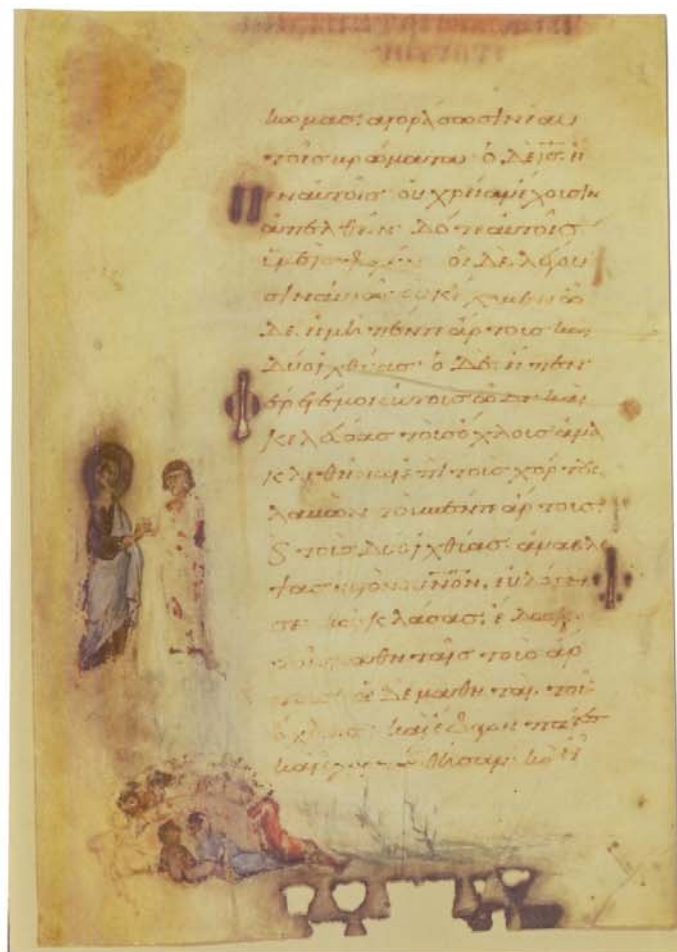 κώμας· ἀγοράσωσιν ἑαυ
τοῖς βρώματα· ὁ δὲ ις εἶ
πεν αὐτοῖς· οὐ χρείαν ἔχουσιν
ἀπελθεῖν· δότε αὐτοῖς
ὑμεῖς φαγεῖν· οἱ δὲ λέγου
σιν αὐτῷ· οὐκ ἔχομεν ὧ
δε, εἰ μὴ πέντε ἄρτους καὶ
δύο ἰχθύας· ὁ δὲ εἶπεν·
φέρετέ μοι αὐτοὺς ὧδε· καὶ
κελεύσας τοὺς ὄχλους ἀνα
κλιθῆναι ἐπὶ τοὺς χόρτους
λαβὼν τοὺς πέντε ἄρτους·
ϗ τοὺς δύο ἰχθύας· ἀναβλέ
ψας εἰς τὸν οὐνον, εὐλόγη
σε· καὶ κλάσας, ἔδωκε
τοῖς μαθηταῖς τοὺς ἄρ
τους· οἱ δὲ μαθηταὶ, τοῖς
ὄχλοις· καὶ ἔφαγον πάντες